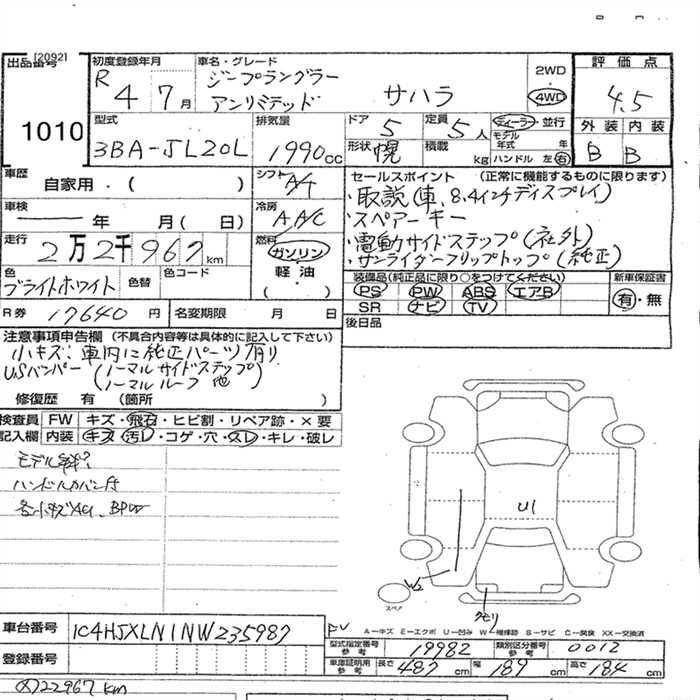 [2092]
出品番号
1010
初度登録年月
R 4 7月
車名・グレード
ジープラングラー
アンリミテッド サハラ
2WD
4WD
評価点
4.5
外装 内装
B B
型式
3BA-JL20L
排気量
1990cc
ドア 5
定員 5人
形状 幌
積載 kg
ディーラー・並行
モデル年式 年
ハンドル 左・右
車歴
自家用・( )
シフト AT
車検
年 月( 日)
冷房 AAC
走行
2万2千967km
燃料
ガソリン
軽油
( )
セールスポイント (正常に機能するものに限ります)
・取説(車、8.4インチディスプレイ)
・スペアーキー
・電動サイドステップ(社外)
・サンライダーフリップトップ(純正)
色
ブライトホワイト
色替
色コード
装備品(純正品に限り○をつけてください)
PS PW ABS エアB
SR ナビ TV
新車保証書
有・無
R券 17640円
名変期限 月 日
後日品
注意事項申告欄 (不具合内容等は具体的に記入して下さい)
小キズ; 車内に純正パーツ有り
USバンパー (ノーマルサイドステップ)
(ノーマルルーフ他)
修復歴 有 (箇所 )
検査員
記入欄
FW キズ・飛石・ヒビ割・リペア跡・×要
内装 キズ・汚レ・コゲ・穴・スレ・キレ・破レ
ハンドルカバー付
U1
W2
クモリ
スペア
A−キズ E−エクボ U−凹み W−補修跡 S−サビ C−腐食 XX−交換済
車台番号
1C4HJXLN1NW235987
登録番号
型式指定番号 参考 19982
類別区分番号 参考 0012
車庫証明用 参考 長さ 487cm 幅 189cm 高さ 184cm
22967km